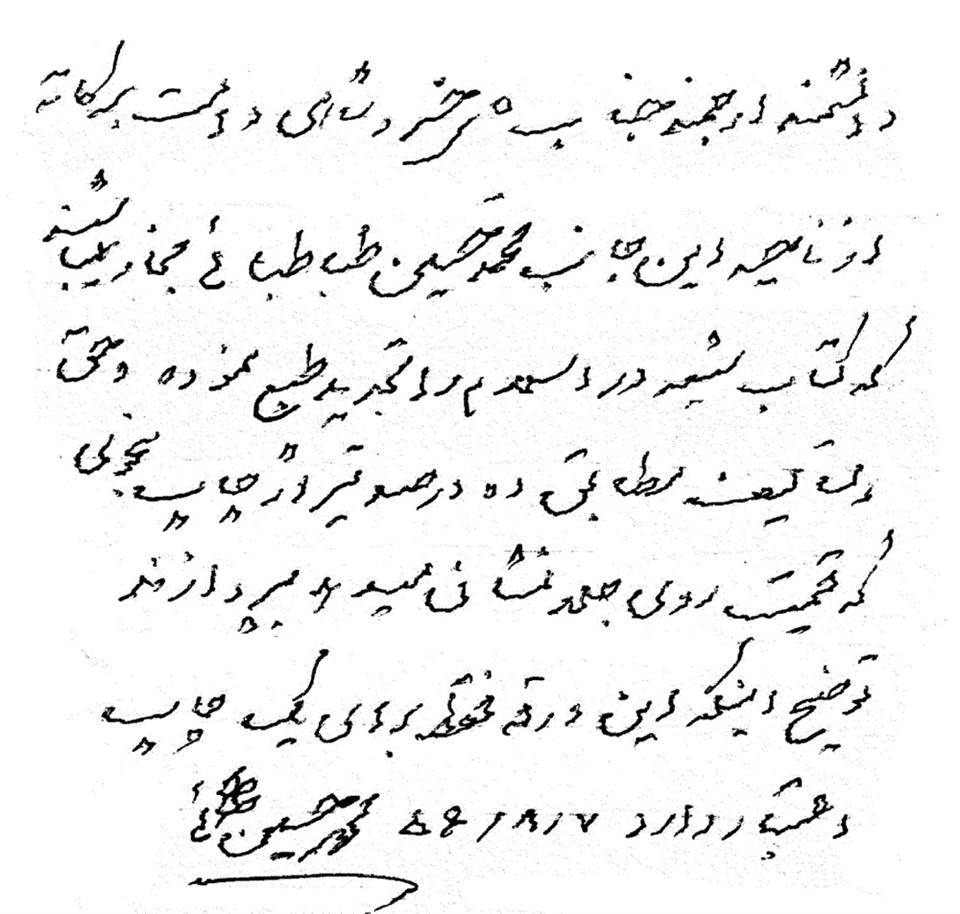 دانشمند ارجمند جناب آقای خسروشاهی دامت برکاته
از ناحیه این جانب محمدحسین طباطبائی مجاز میباشند
که کتاب شیعه در اسلام را تجدید طبع نموده و حق
التالیف مطابق ده درصد تیراژ چاپ بخوبی
که قیمت روی جلد نشانی میدهد بپردازند
توضیح اینکه این ورقه فقط برای یک چاپ
اعتبار دارد ۵۶/۸/۷ محمدحسین طباطبائی